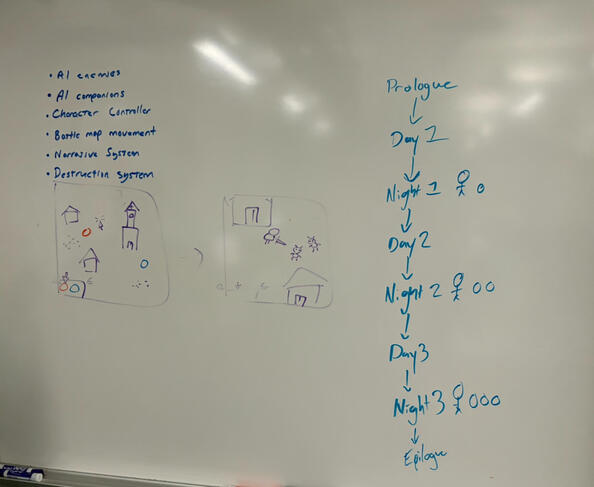 • AI enemies
• AI companions
• Character Controller
• Battle map movement
• Narrative System
• Destruction system
Prologue
Day 1
Night 1
Day 2
Night 2
Day 3
Night 3
Epilogue